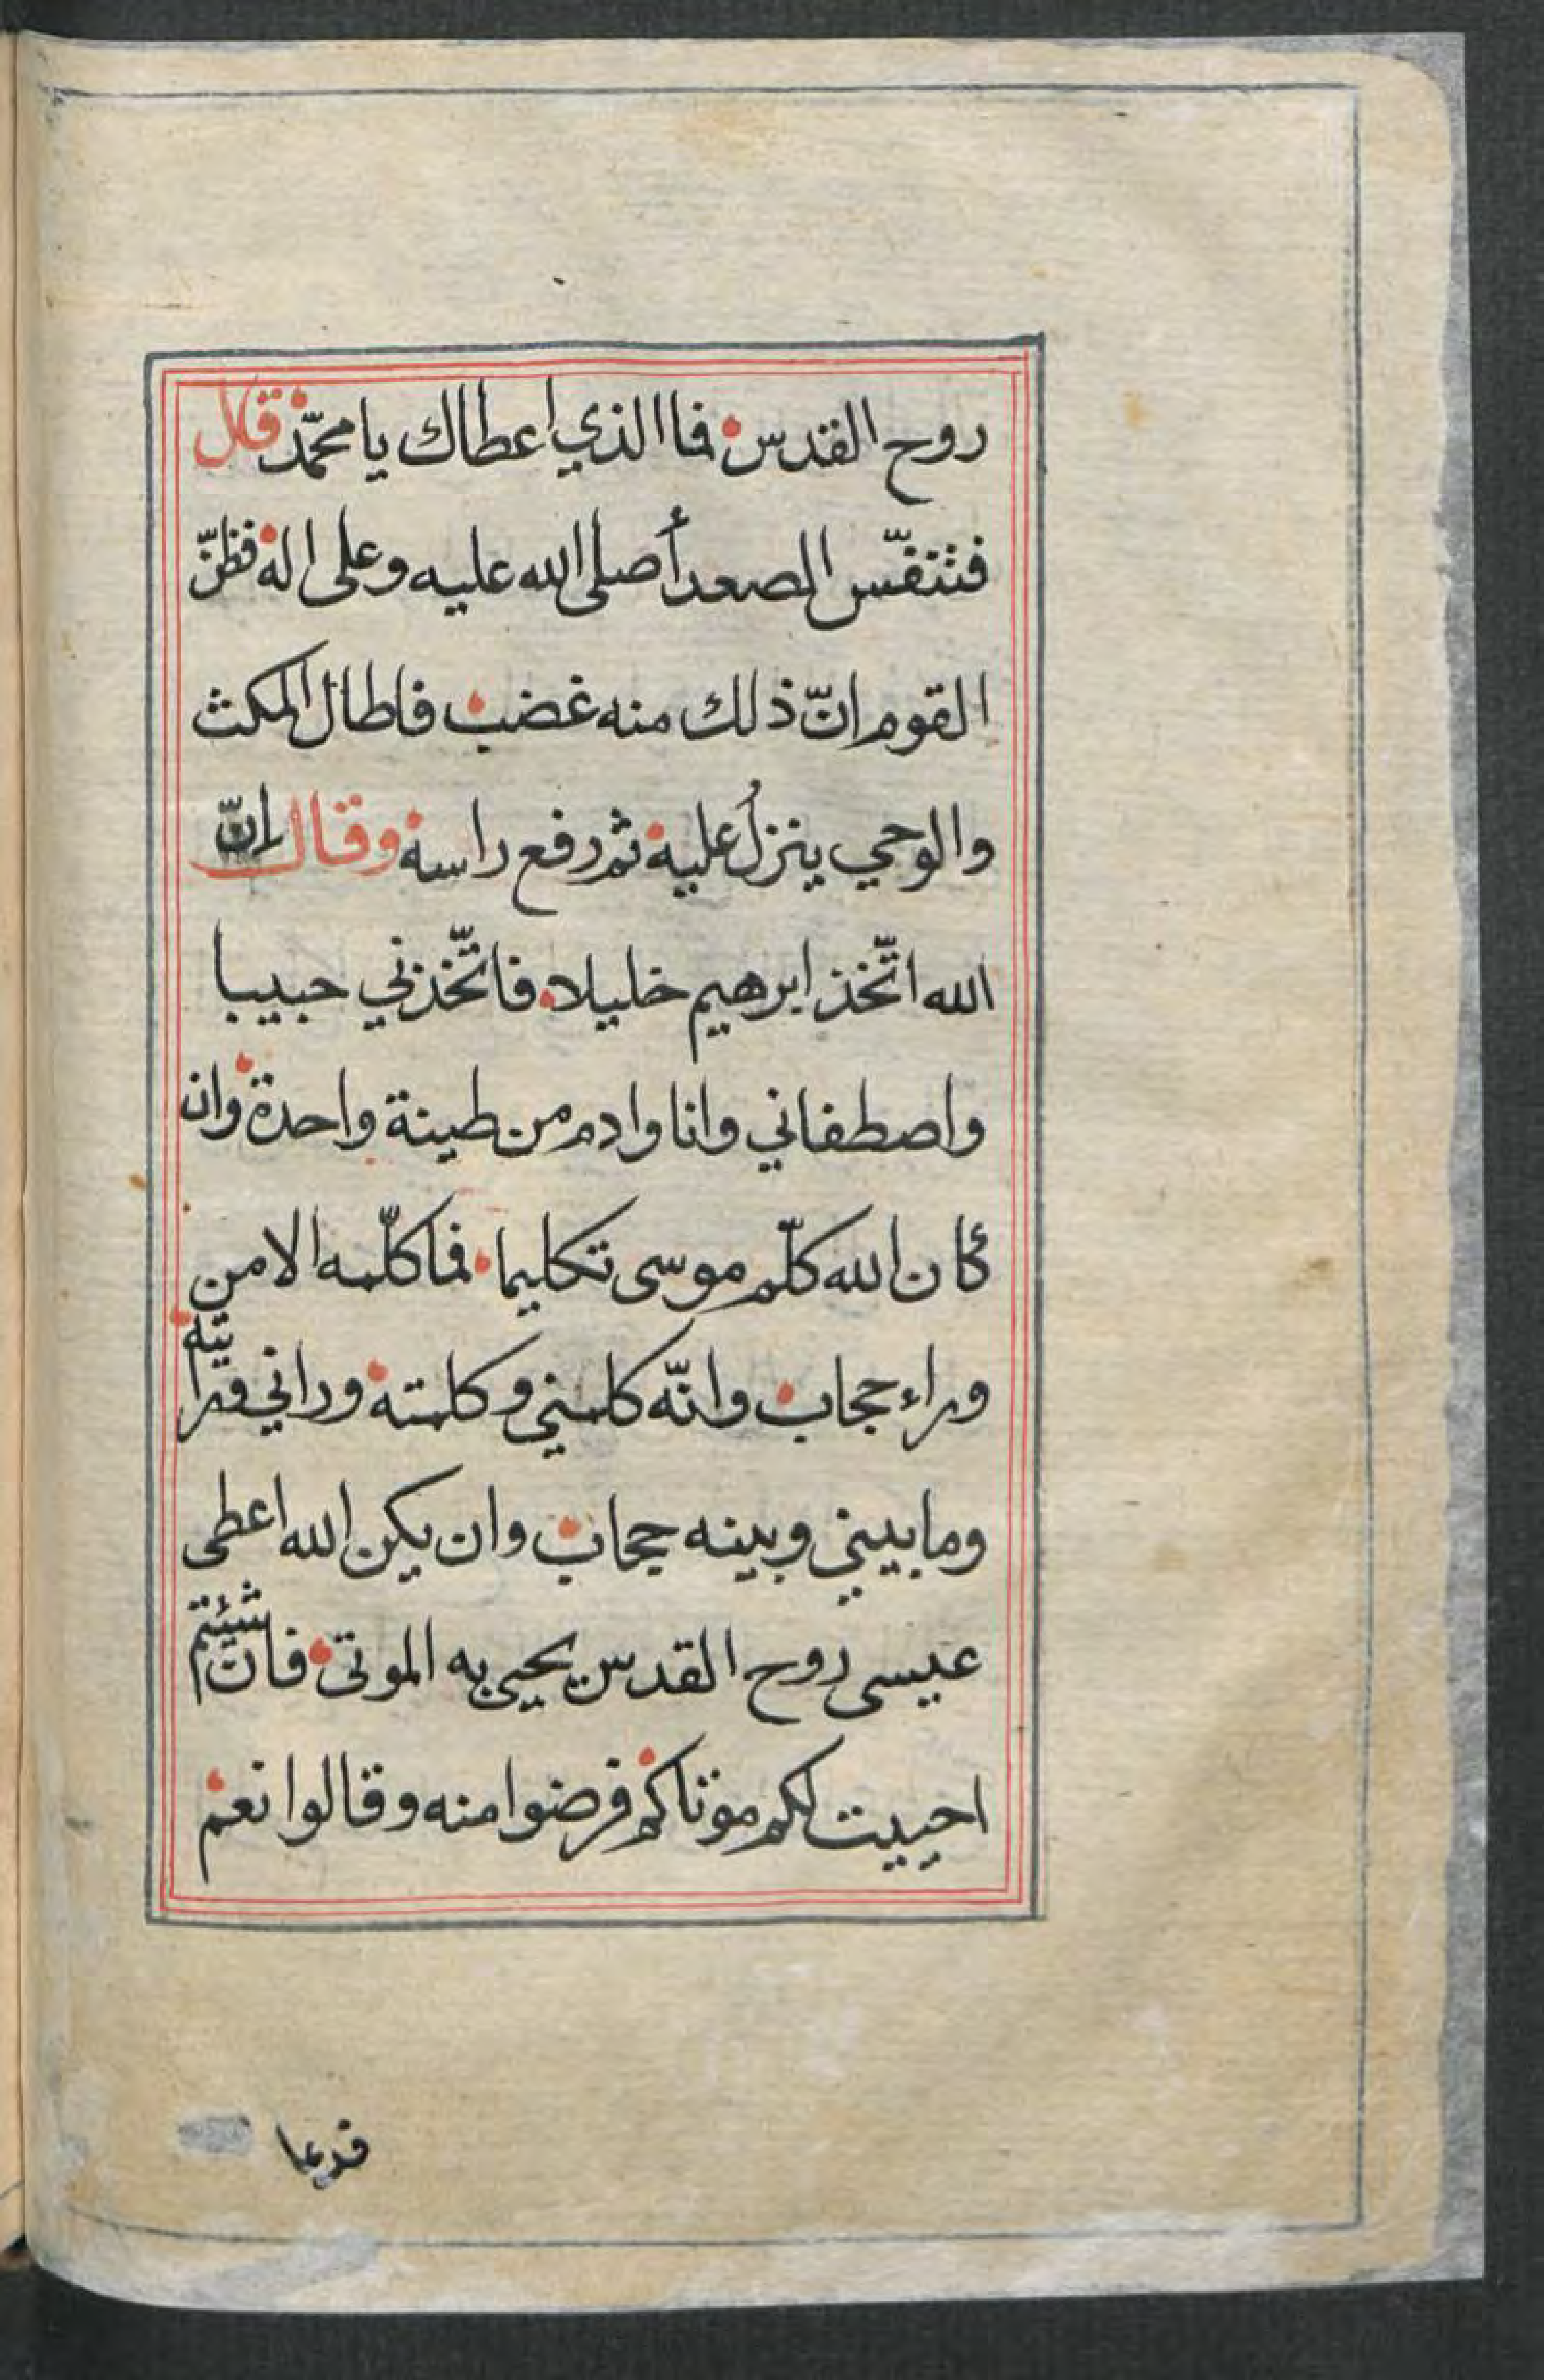 روح القدس فما الذي اعطاك يا محمّد قال
فتنفّس الصعدأ صلى الله عليه وعلى اله فظنّ
القوم انّ ذلك منه غضب فاطال المكث
والوحي ينزل عليه ثم رفع راسه وقال انّ
الله اتّخذ ابرهيم خليلا فاتّخذني حبيبا
واصطفاني وانا وادم من طينة واحدة وان
كان الله كلّم موسى تكليما فما كلّمه الا من
وراء حجاب وانّه كلمني وكلمته وراني ورايته
وما بيني وبينه حجاب وان يكن الله اعطى
عيسى روح القدس يحيى به الموتى فان شئتم
احييت لكم موتاكم فرضوا منه وقالوا نعم
فدعا